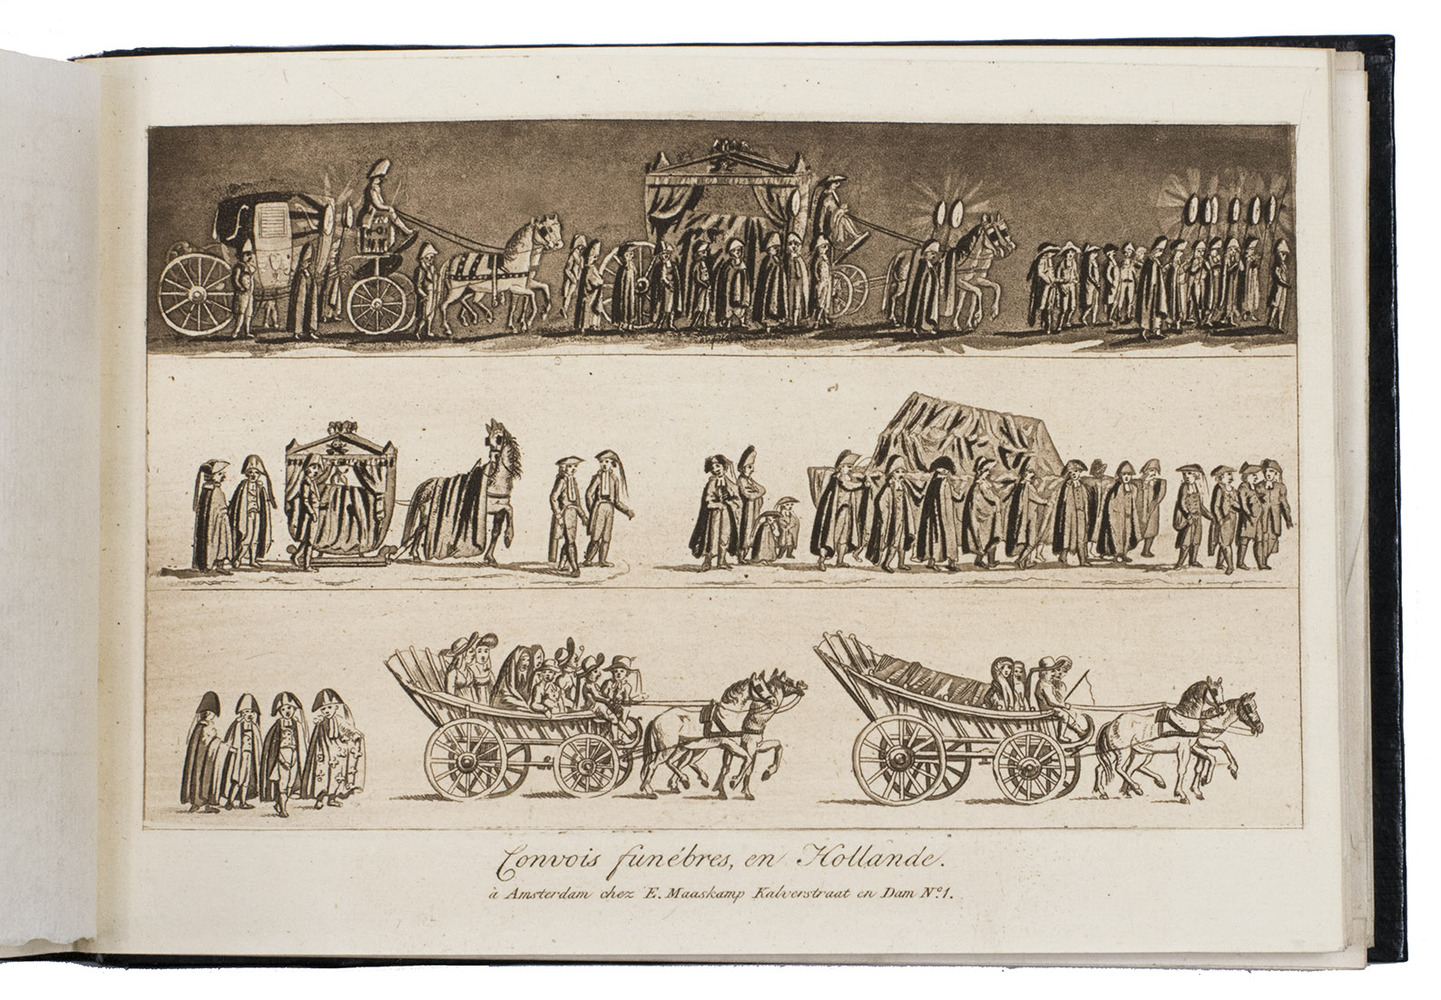 Convois funébres, en Hollande.
à Amsterdam chez E. Maaskamp Kalverstraat en Dam Nº 1.